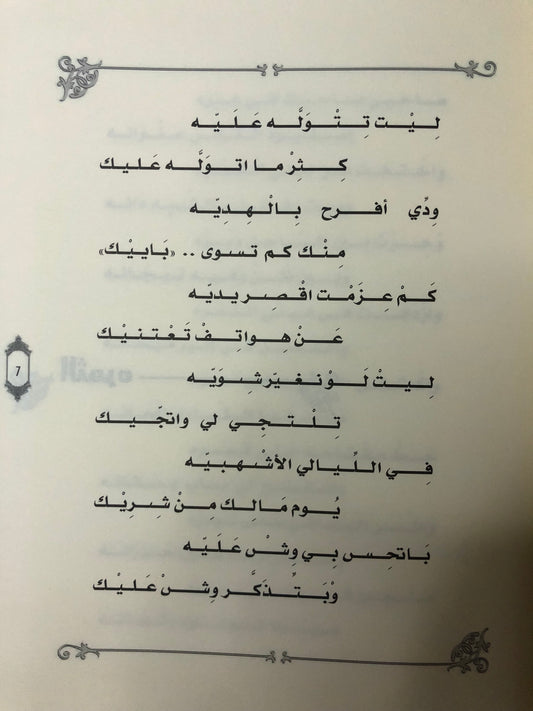 لِيْت تِتْوَلَّه عَلَيّه
كِثِرْ ما اتولَّه عَليك
وِدِّي أفرح بِالْهِديّه
مِنْك كم تسوى .. «بَايِيْك»
كَمْ عِزَمْت اقْصِر يديّه
عَنْ هِواتِفْ تَعْتنيْك
لِيتْ لَوْ نغيّر شِوَيّه
تِلْتجي لي واتجّيك
فِي اللِّيالي الأشْهبيّه
يُوم مَالِك مِنْ شِرِيْك
بَاتحِس بِي وِشْ عَلَيّه
وْبَتْذَكَّر وِشْ عَليْك
7